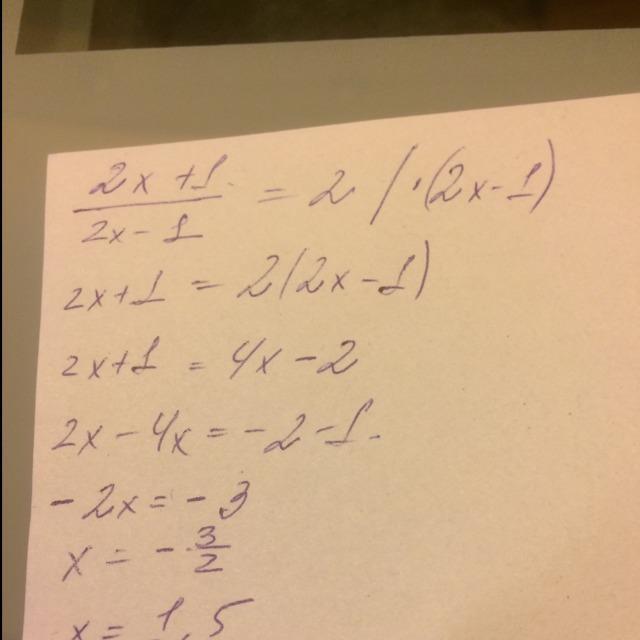 2x+1/2x-1 = 2 / ·(2x-1)
2x+1 = 2(2x-1)
2x+1 = 4x-2
2x-4x=-2-1.
-2x=-3
x=-3/2
x=1,5